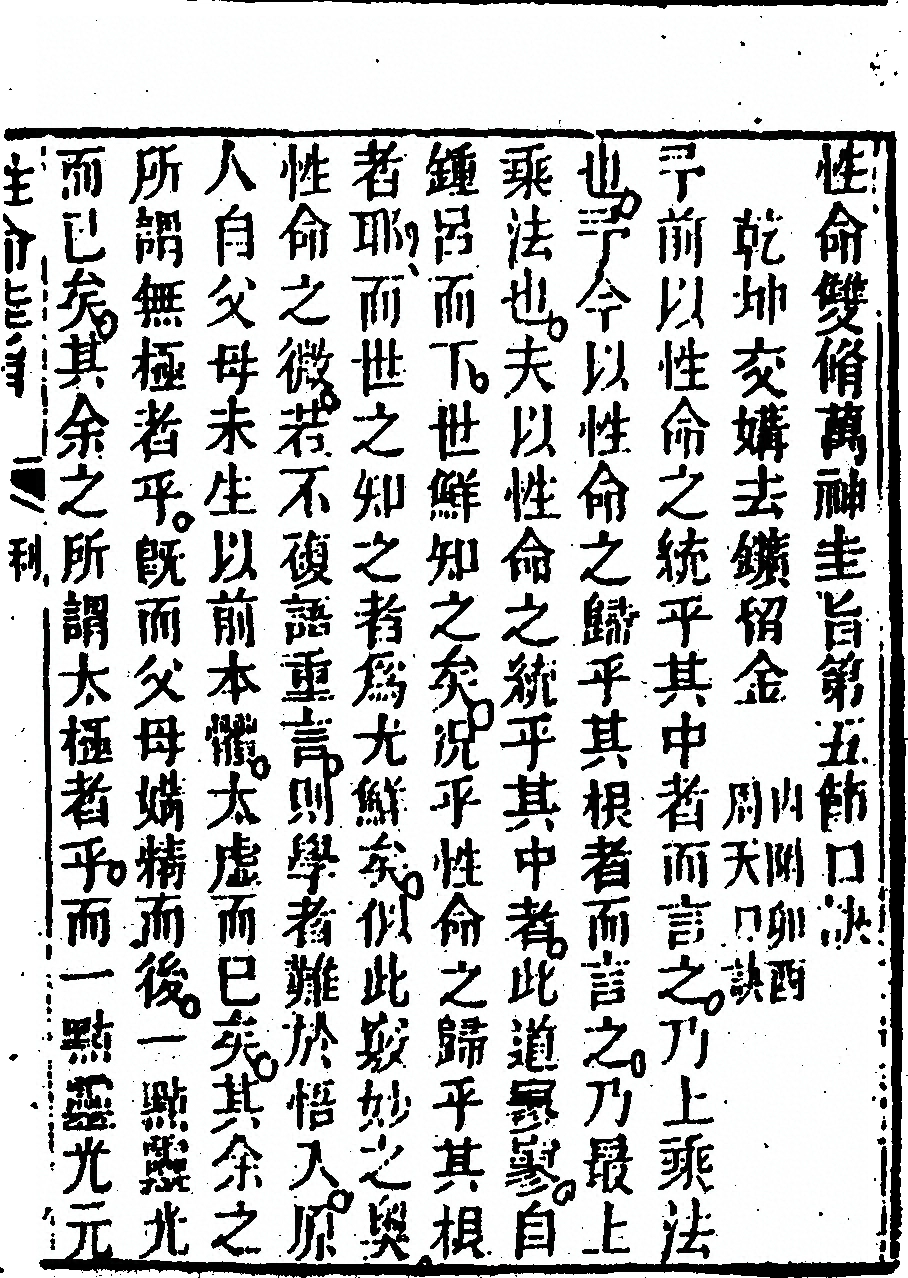 性命雙脩萬神圭旨第五節口訣
乾坤交媾去鑛留金
內附卯酉
周天口訣
予前以性命之統乎其中者而言之乃上乘法
也予今以性命之歸乎其根者而言之乃最上
乘法也夫以性命之統乎其中者此道寥寥自
鍾呂而下世鮮知之矣況乎性命之歸乎其根
者耶而世之知之者爲尤鮮矣似此最妙之奧
性命之微若不複語重言則學者難於悟入原
人自父母未生以前本體太虛而已矣其余之
所謂無極者乎既而父母媾精而後一點靈光
而已矣其余之所謂太極者乎而一點靈光元
利